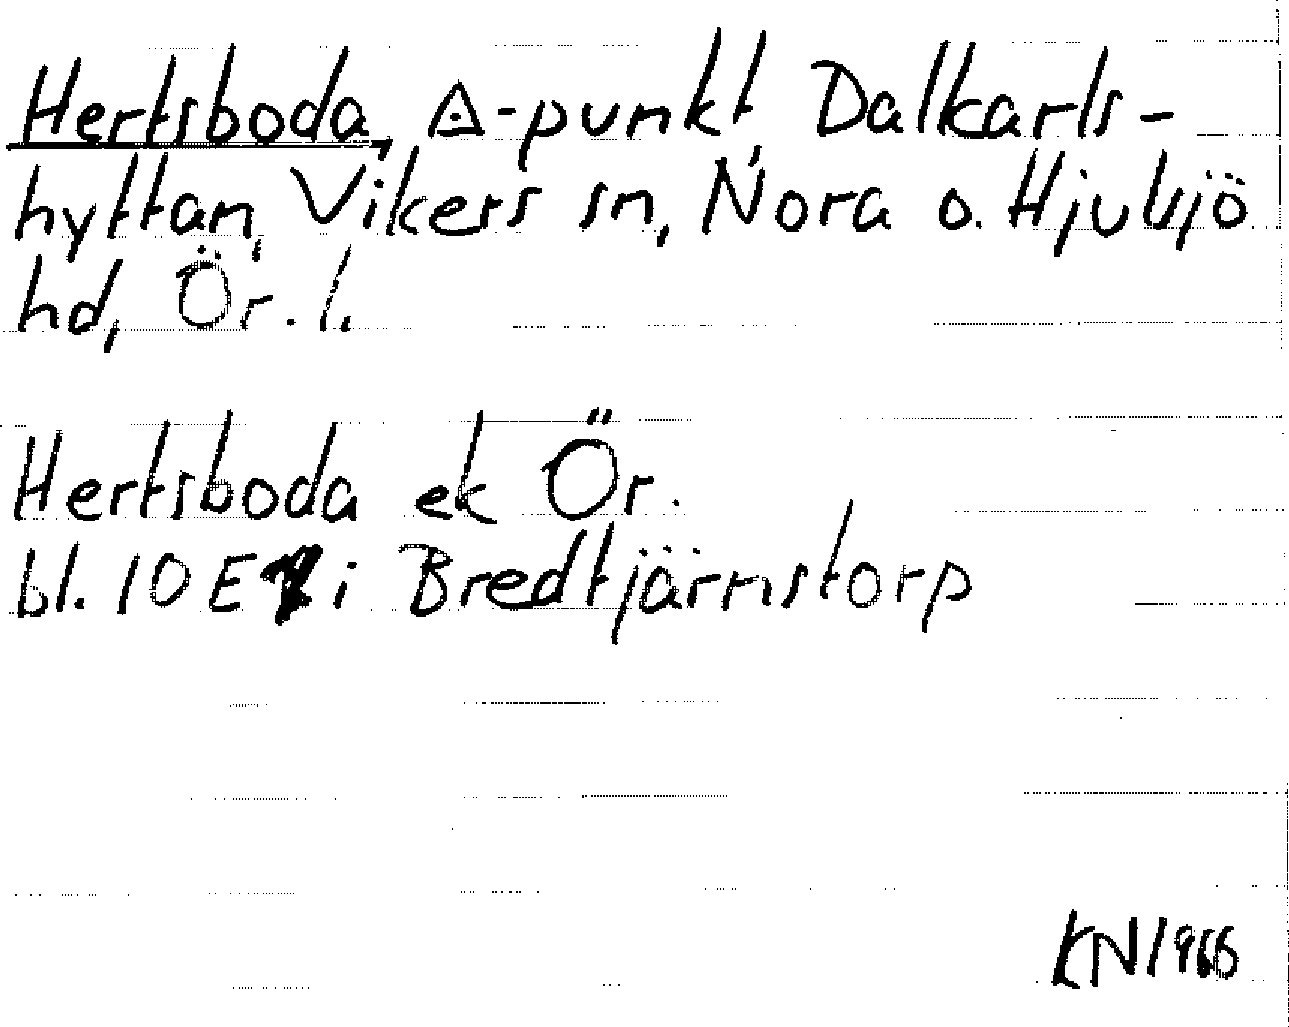 Hertsboda, ◬-punkt, Dalkarls-
hyttan, Vikers sn, Nora o. Hjulsjö
hd, Ör. l.
Hertsboda ek Ör.
bl. 10 E i Bredtjärnstorp
KN 1966